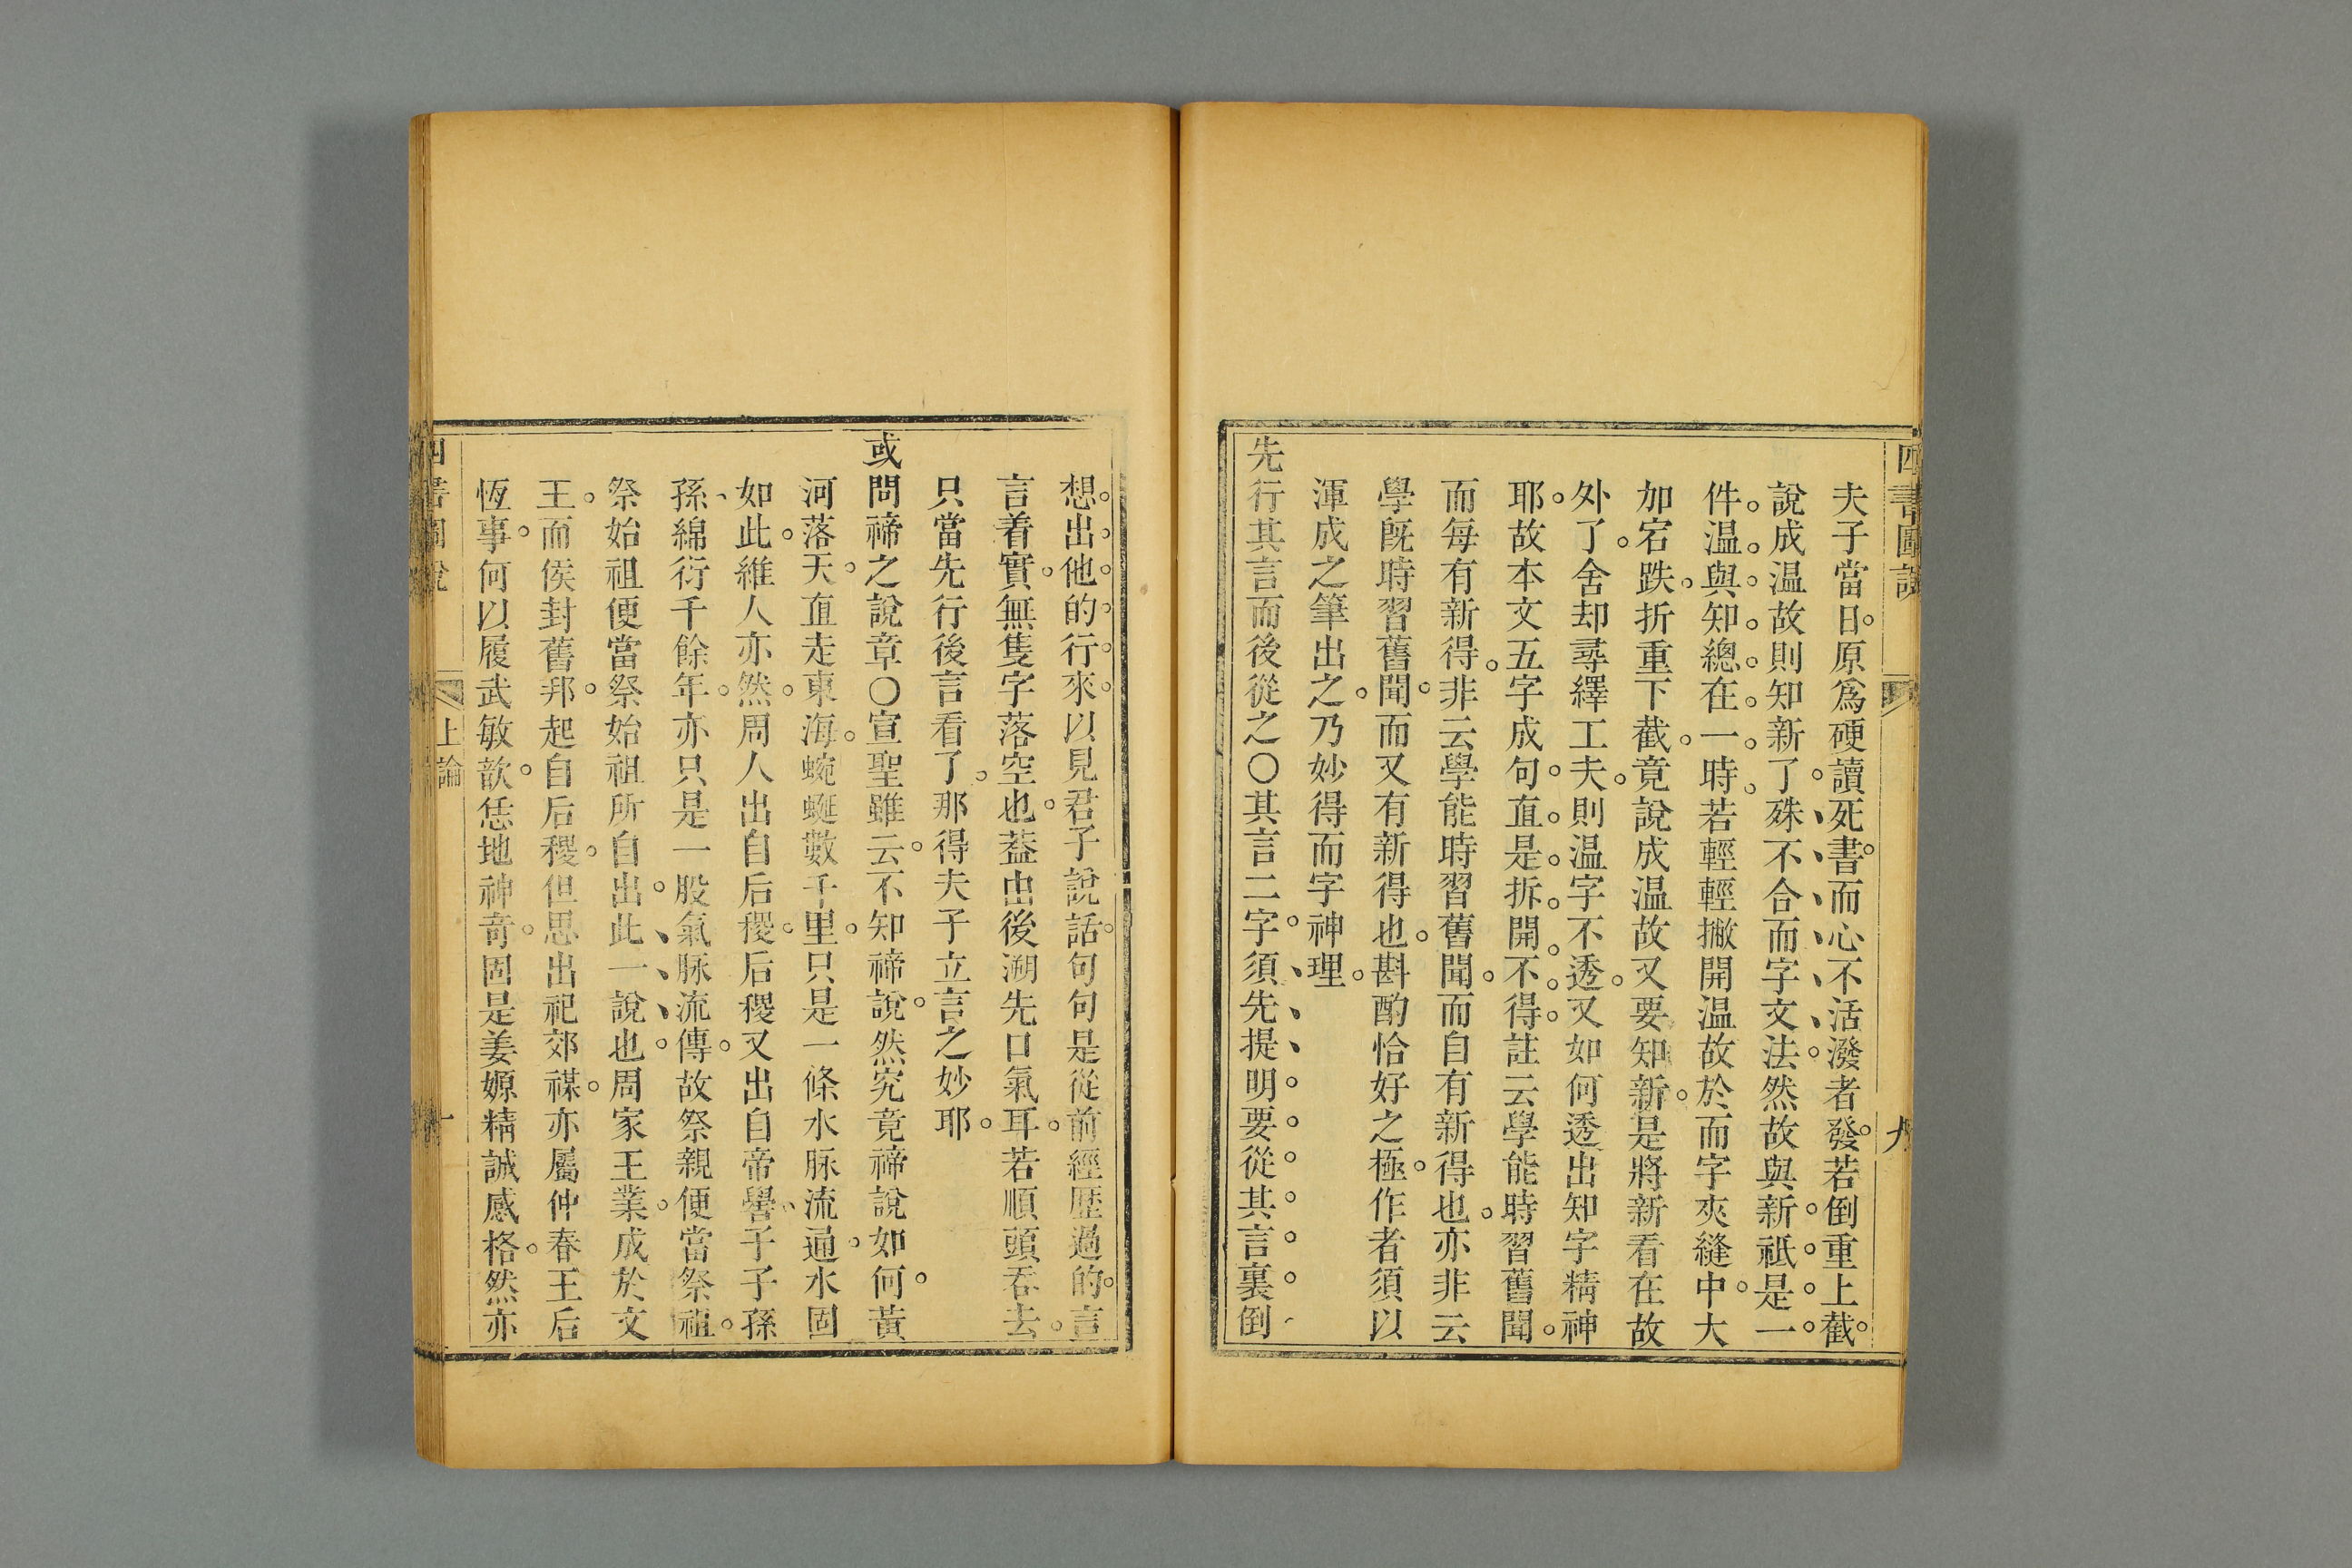 四書圖說
九
夫子當日原爲硬讀死書而心不活潑者發若倒重上截
說成温故則知新了殊不合而字文法然故與新祗是一
件温與知總在一時若輕輕撇開温故於而字夾縫中大
加宕跌折重下截竟說成温故又要知新是將新看在故
外了舍却尋繹工夫則温字不透又如何透出知字精神
耶故本文五字成句直是拆開不得註云學能時習舊聞
而每有新得非云學能時習舊聞而自有新得也亦非云
學旣時習舊聞而又有新得也斟酌恰好之極作者須以
渾成之筆出之乃妙得而字神理
先行其言而後從之〇其言二字須先提明要從其言裏倒
想出他的行來以見君子說話句句是從前經歷過的言
言着實無隻字落空也葢由後溯先口氣耳若順頭吞去
只當先行後言看了那得夫子立言之妙耶
或問禘之說章〇宣聖雖云不知禘說然究竟禘說如何黃
河落天直走東海蜿蜒數千里只是一條水脉流通水固
如此維人亦然周人出自后稷后稷又出自帝嚳子子孫
孫綿衍千餘年亦只是一股氣脉流傳故祭親便當祭祖
祭始祖便當祭始祖所自出此一說也周家王業成於文
王而侯封舊邦起自后稷但思出祀郊禖亦屬仲春王后
恆事何以履武敏歆恁地神奇固是姜嫄精誠感格然亦
四書圖說
上論
十